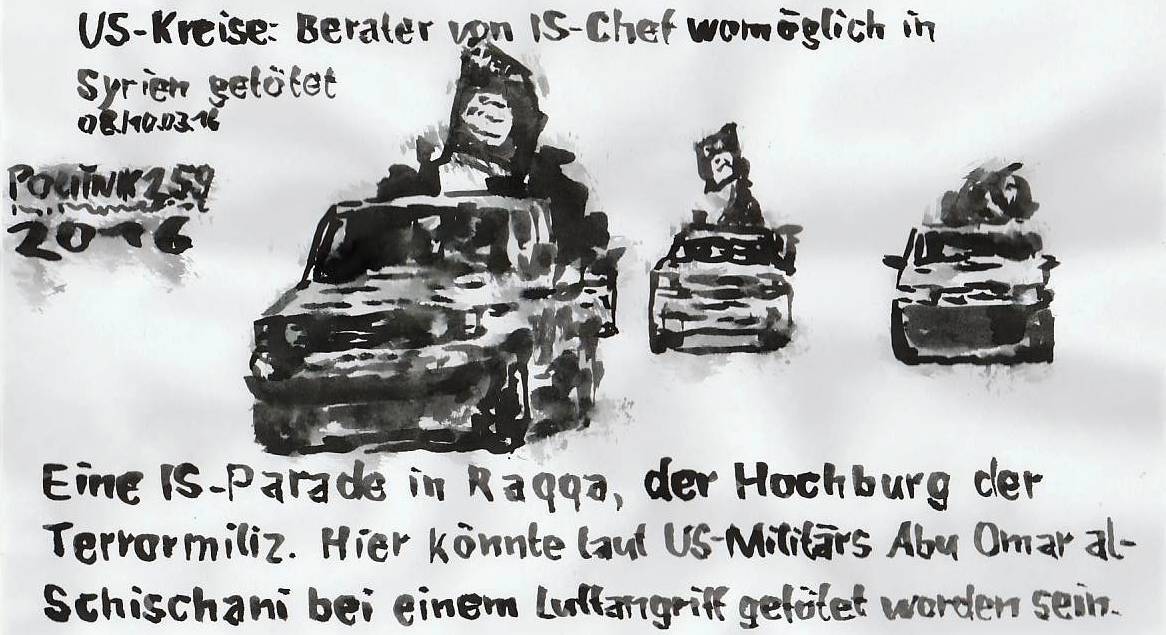 US-Kreise: Berater von IS-Chef womöglich in
Syrien getötet
08./10.03.16
POLITNIK 259
2016
Eine IS-Parade in Raqqa, der Hochburg der
Terrormiliz. Hier könnte laut US-Militärs Abu Omar al-
Schischani bei einem Luftangriff getötet worden sein.